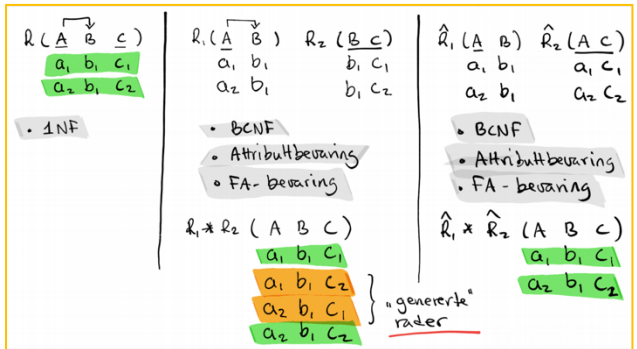 R ( A B C )
a₁ b₁ c₁
a₂ b₁ c₂
• 1NF
R₁ ( A B ) R₂ ( B C )
a₁ b₁ b₁ c₁
a₂ b₁ b₁ c₂
• BCNF
• Attributtbevaring
• FA-bevaring
R₁ * R₂ ( A B C )
a₁ b₁ c₁
a₁ b₁ c₂
a₂ b₁ c₁
a₂ b₁ c₂
"genererte"
rader
R̂₁ ( A B ) R̂₂ ( A C )
a₁ b₁ a₁ c₁
a₂ b₁ a₂ c₂
• BCNF
• Attributtbevaring
• FA-bevaring
R̂₁ * R̂₂ ( A B C )
a₁ b₁ c₁
a₂ b₁ c₂